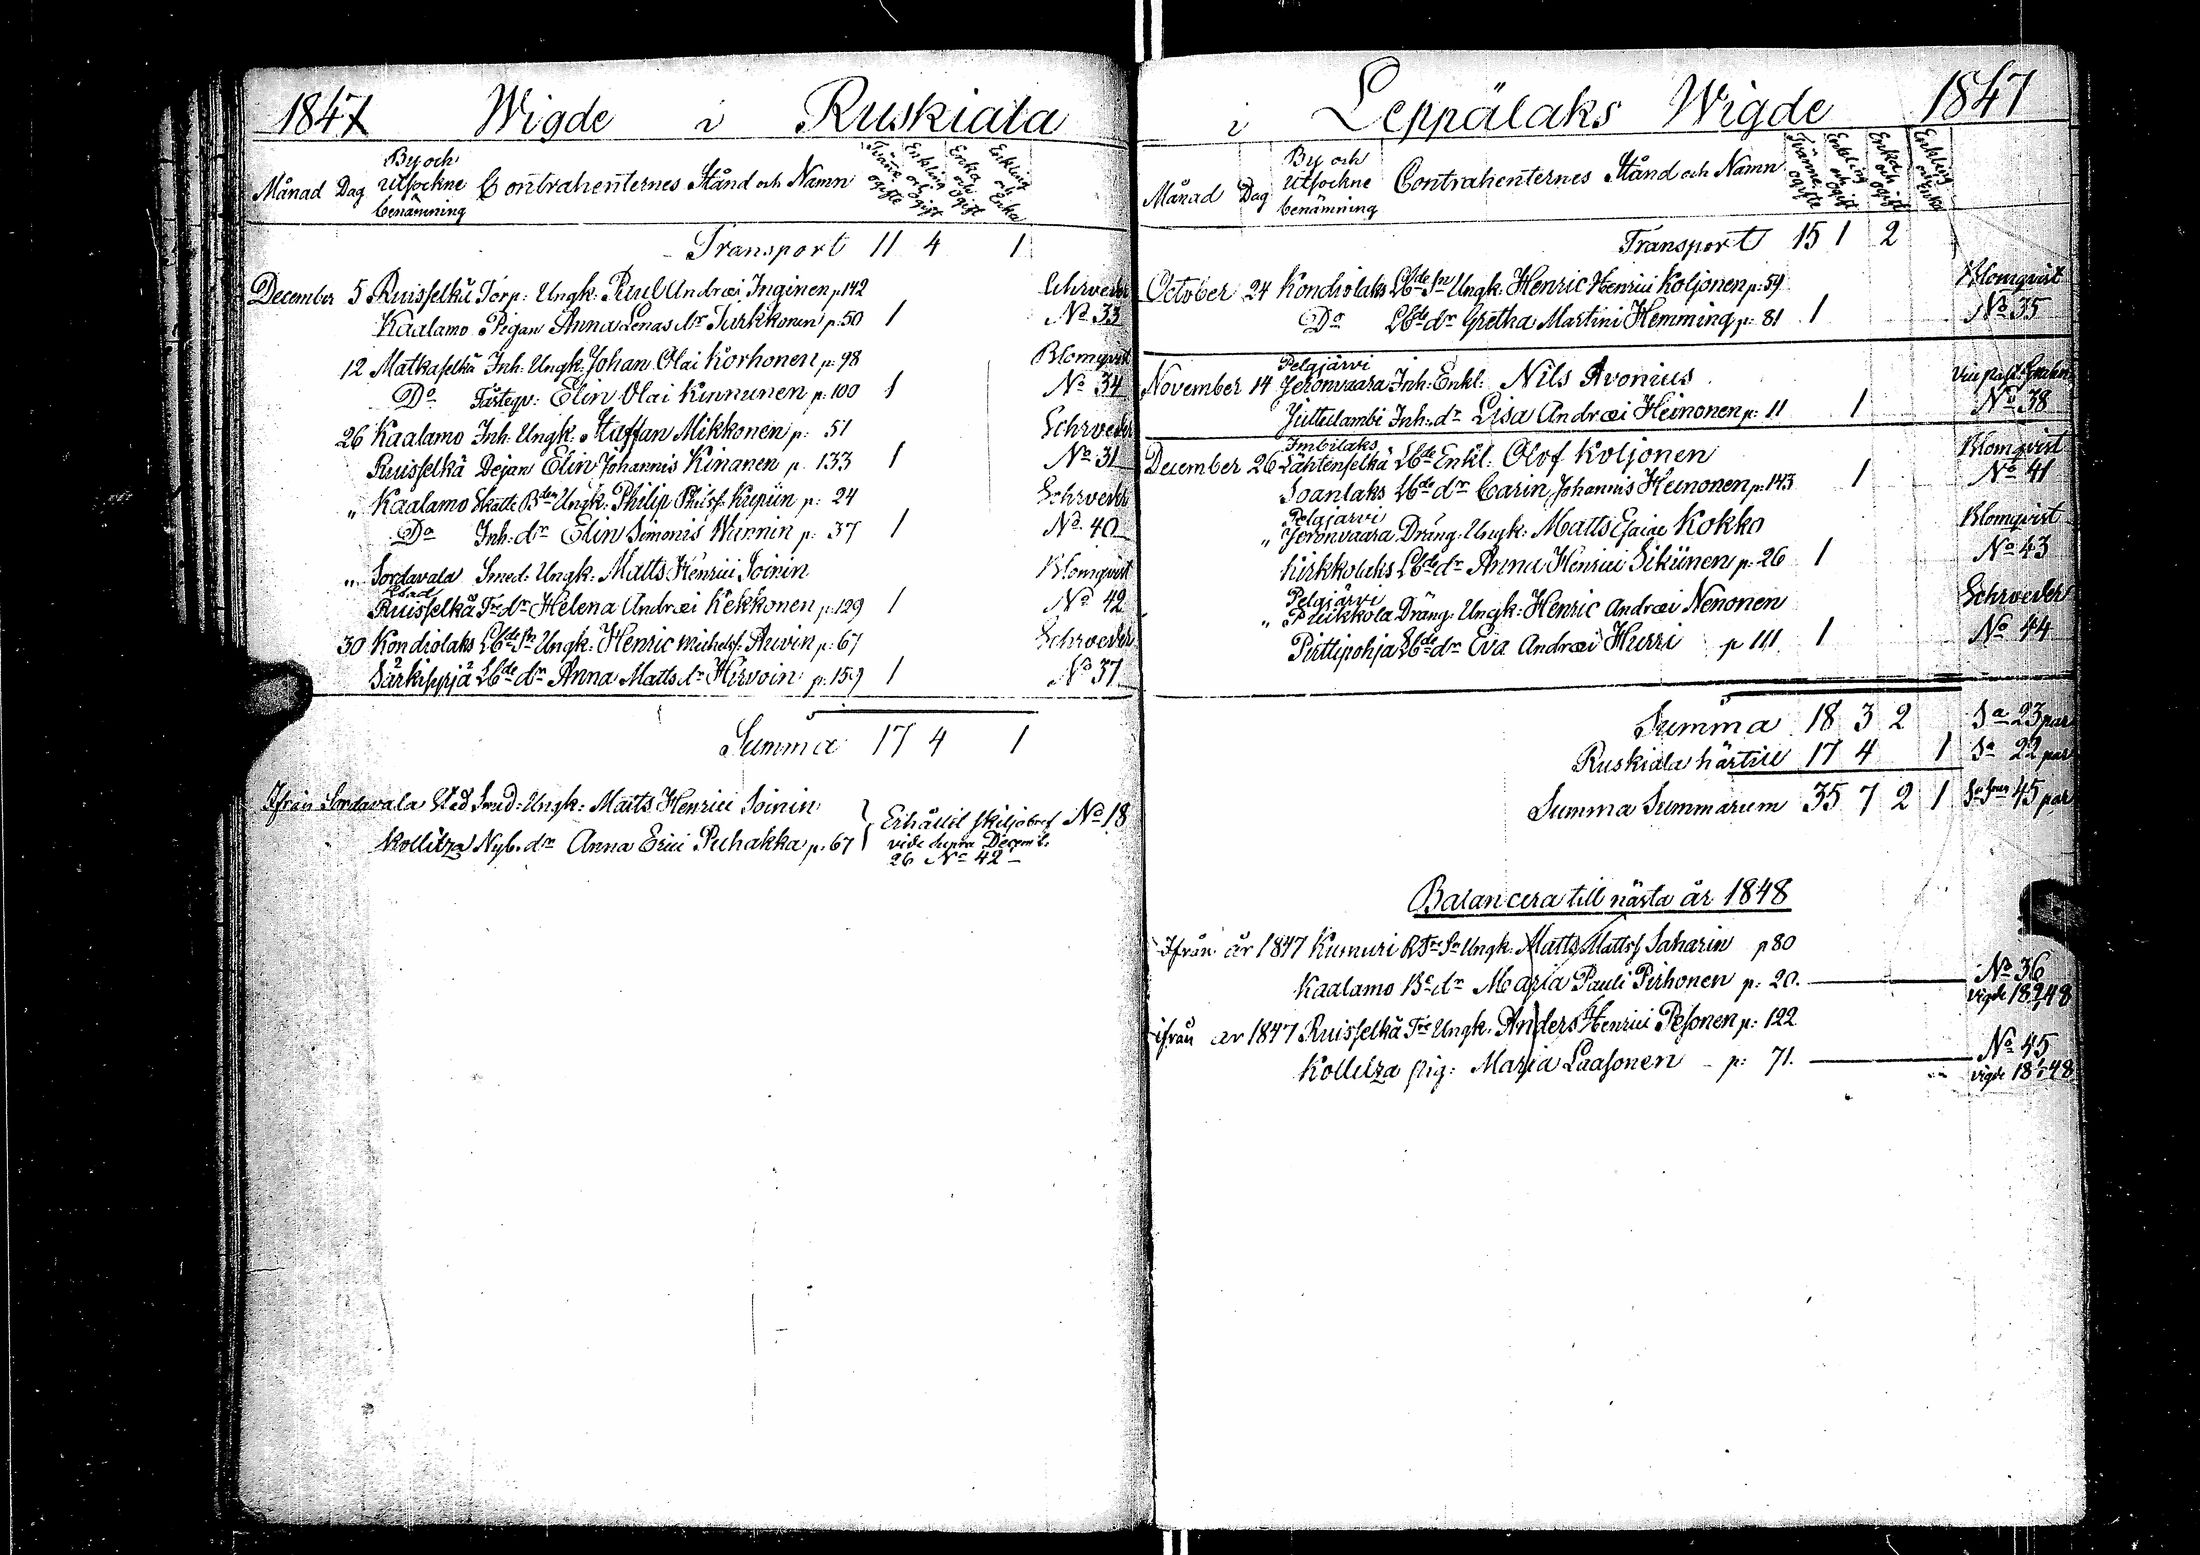 1847 Wigde i Ruskiala
Månad Dag By och Utsockne benämning Contrahenternes Stånd och Namn Tvänne ogifte Enkling och Ogift Enka och Ogift Enkling och Enka
Transport 11 4 1
December 5 Ruisselkä Torp: Ungk: Paul Andræi Inginen p. 142 Schrveder
Kaalamo Pigan Anna Lenas dr Turkkonen p. 50 1 No 33
12 Matkaselkä Inh: Ungk: Johan Olai Korhonen p. 98 Blomqvist
Do Elin Olai Kinnunen p. 100 1 No 34
26 Kaalamo Inh: Ungk: Staffan Mikkonen p. 51 Schrveder
Ruisselkä Dejan Elin Johannis Kinanen p. 133 1 No 31
" Kaalamo Skatte Ungk: Philip Krepiin p. 24 Schrveder
Do Inh: dr Elin Simonis Wannin p. 37 1 No 40
" Sordavala Stad Smed: Ungk: Matts Henrici Soinin Blomqvist
Ruisselkä Tr dr Helena Andræi Kekkonen p. 129 1 No 42
30 Kondiolaks Lbde Sn Ungk: Henric Michelss: Auvin p. 67 Schrveder
Särkisyrjä Lbde dr Anna Matts dr Hirvoin p. 159 1 No 37
Summa 17 4 1
Ifrån Sordavala Stad Smed: Ungk: Matts Henrici Soinin
Kollitza Nyb. dr Anna Erici Puhakka p. 67 Erhållit skiljobref No 18
vide supra Decemb.
26 No 42
i Leppälaks Wigde 1847
Månad Dag By och Utsockne benämning Contrahenternes Stånd och Namn Tvänne ogifte Enkling och Ogift Enka och ogift Enkling och Enka
Transport 15 1 2
October 24 Kondiolaks Lbde Sn Ungk: Henric Henrici Koljonen p. 59 Blomqvist
Do Lbde dr Gretka Martini Hemming p. 81 1 No 35
Pelgjärvi
November 14 Jeronvaara Inh: Enkl: Nils Avonius
Julkulambi Inh: dr Lisa Andræi Heinonen p. 11 1 No 38
Imbilaks
December 26 Lahtenselkä Lbde Enkl: Olof Koljonen Blomqvist
Soanlaks Lbde dr Carin Johannis Heinonen p. 143 1 No 41
Pelgjärvi
" Jeronvaara Dräng: Ungk: Matts Esaiae Kokko Blomqvist
Kirkkolaks Lbde dr Anna Henrici Sikiinen p. 26 1 No 43
Pelgjärvi
" Puikkola Dräng: Ungk: Henric Andræi Nenonen Schrveder
Pirttipohja Lbde dr Eva Andræi Hurri p 111 1 No 44
Summa 18 3 2 Sa 23 par
Ruskiala härtill 17 4 1 Sa 22 par
Summa Summarum 35 7 2 1 45 par
Balancera till nästa år 1848
Ifrån år 1847 Kumuri Ungk: Matts Mattss Saharin p 80
Kaalamo Be dr Maria Pauli Pirhonen p. 20. No 36
ifrån år 1847 Ruisselkä Tre Ungk. Anders Henrici Pesonen p. 122 vigde 18 48
Kollitza pig: Maria Laasonen p: 71. No 45
vigde 18 48